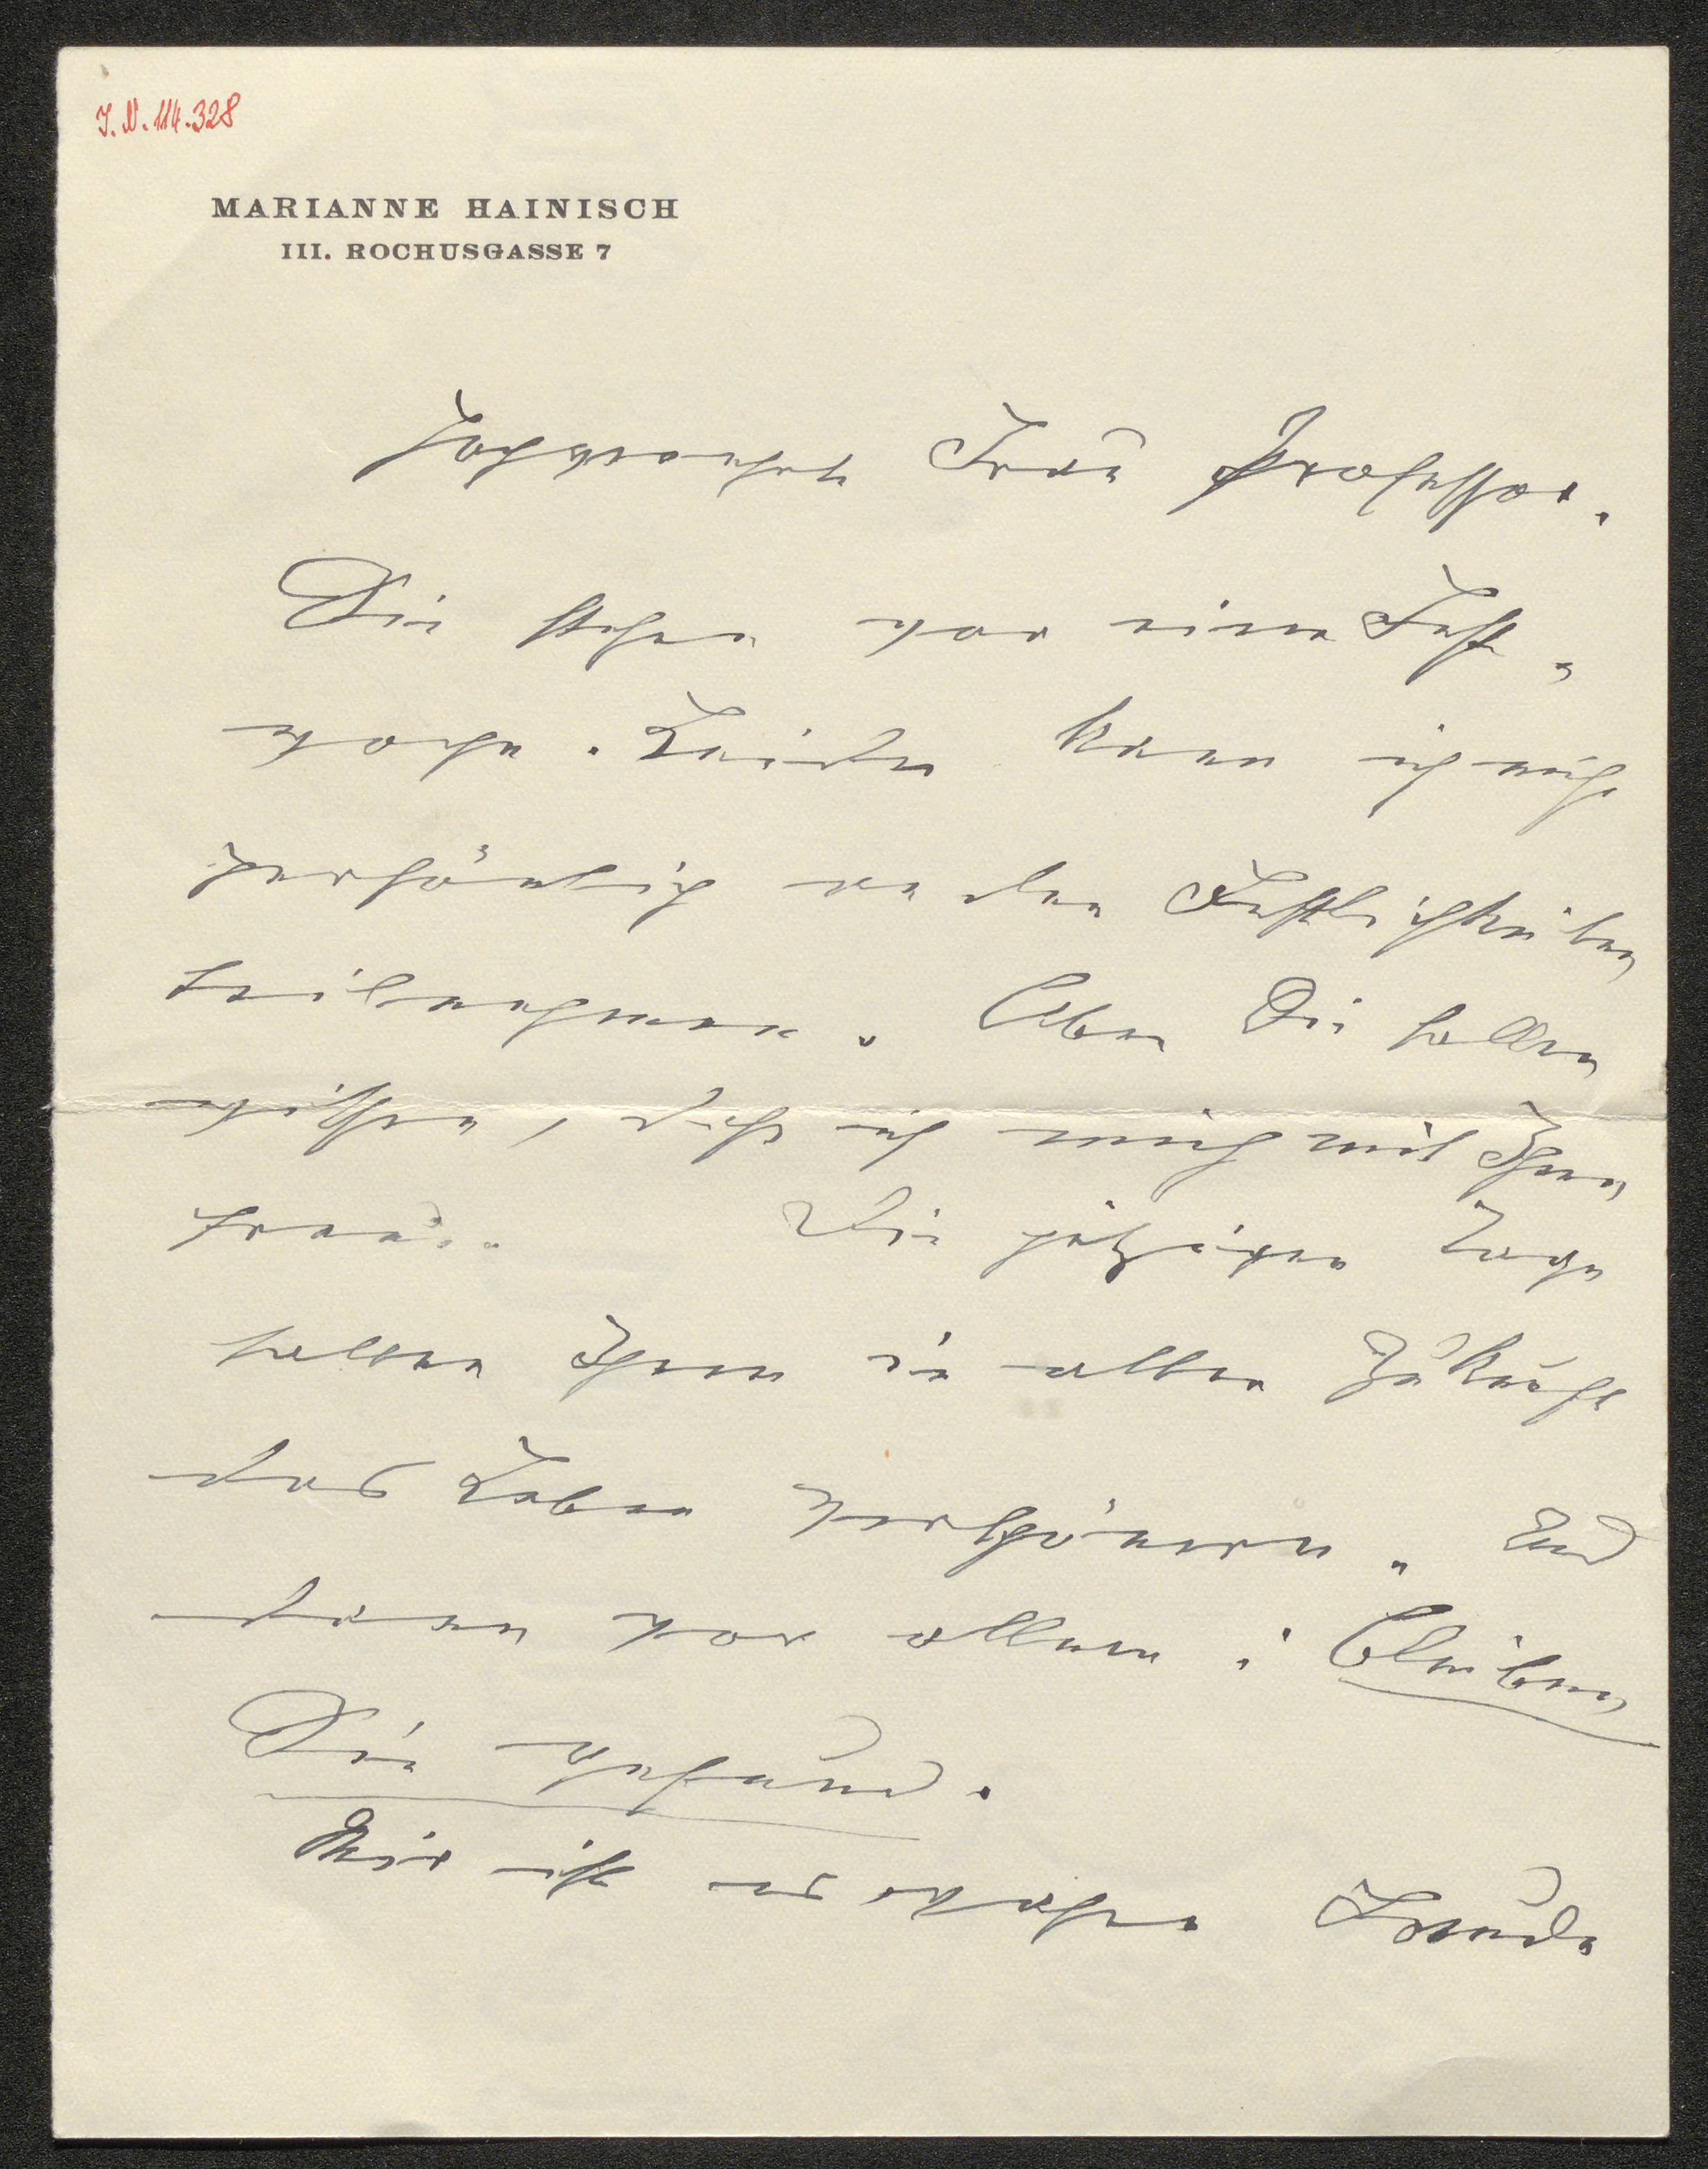 I. N. 114.328
MARIANNE HAINISCH
III. ROCHUSGASSE 7
Hochverehrte Frau Professor.
Sie stehen vor einer Fest-
woche. Leider kann ich nicht
persönlich an den Festlichkeiten
teilnehmen. Aber Sie sollen
wissen, daß ich mich mit Ihnen
freue. Die jetzigen Tage
sollen Ihnen in aller Zukunft
das Leben verschönern. Und
dann vor allem: Bleiben
Sie gesund.
Mir ist es wahre Freude